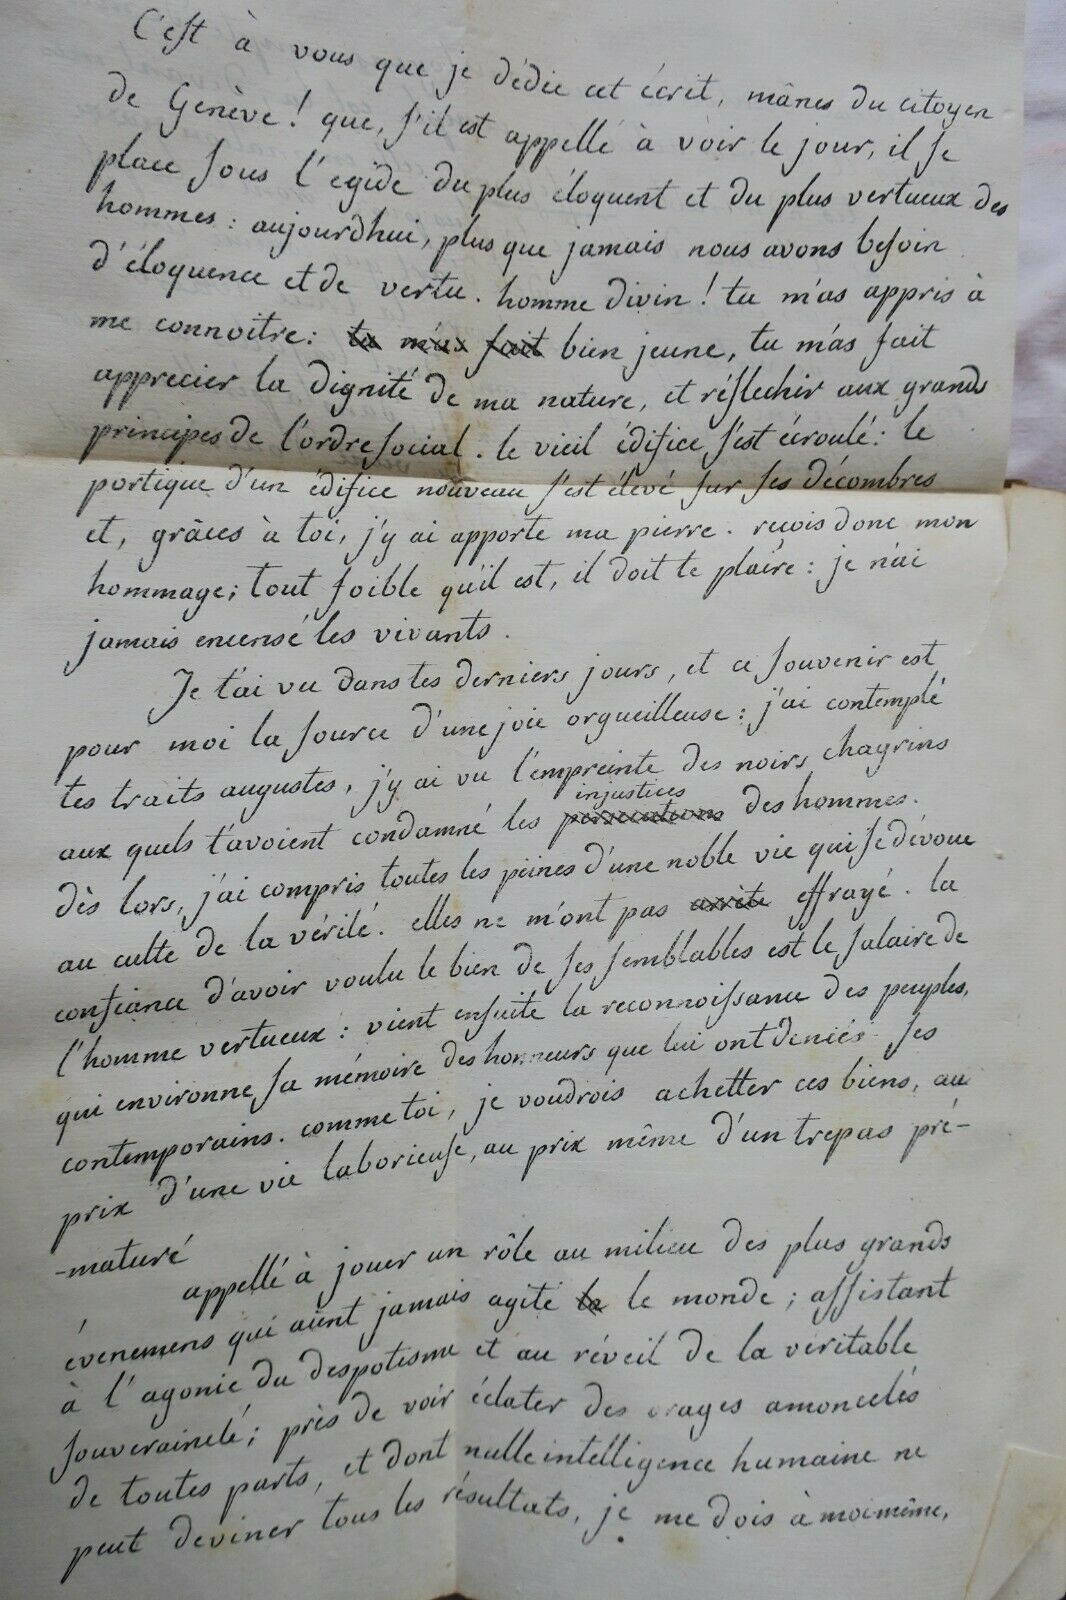 C'est à vous que je dédie cet écrit, mânes du citoyen
de Genève ! que, s'il est appellé à voir le jour, il se
place sous l'egide du plus éloquent et du plus vertueux des
hommes : aujourdhui, plus que jamais nous avons besoin
d'éloquence et de vertu. homme divin ! tu m'as appris à
me connoitre : tu m'as fait bien jeune, tu m'as fait
apprecier la dignité de ma nature, et réflechir aux grands
principes de l'ordre social. le vieil édifice s'est écroulé : le
portique d'un édifice nouveau s'est élevé sur ses décombres
et, grâces à toi, j'y ai apporte ma pierre. reçois donc mon
hommage ; tout foible qu'il est, il doit te plaire : je n'ai
jamais encensé les vivants.
Je t'ai vu dans tes derniers jours, et ce souvenir est
pour moi la source d'une joie orgueilleuse : j'ai contemplé
tes traits augustes, j'y ai vu l'empreinte des noirs chagrins
injustices
aux quels t'avoient condamné les persecutions des hommes.
dès lors, j'ai compris toutes les peines d'une noble vie qui se dévoue
au culte de la vérité. elles ne m'ont pas arrêté effrayé. la
confiance d'avoir voulu le bien de ses semblables est le salaire de
l'homme vertueux : vient ensuite la reconnoissance des peuples,
qui environne sa mémoire des honneurs que lui ont deniés ses
contemporains. comme toi, je voudrois achetter ces biens, au
prix d'une vie laborieuse, au prix même d'un trepas pré-
-maturé
appellé à jouer un rôle au milieu des plus grands
évenemens qui aient jamais agité la le monde ; assistant
à l'agonie du despotisme et au réveil de la veritable
souveraineté ; près de voir éclater des orages amoncelés
de toutes parts, et dont nulle intelligence humaine ne
peut deviner tous les résultats, je me dois à moi même,